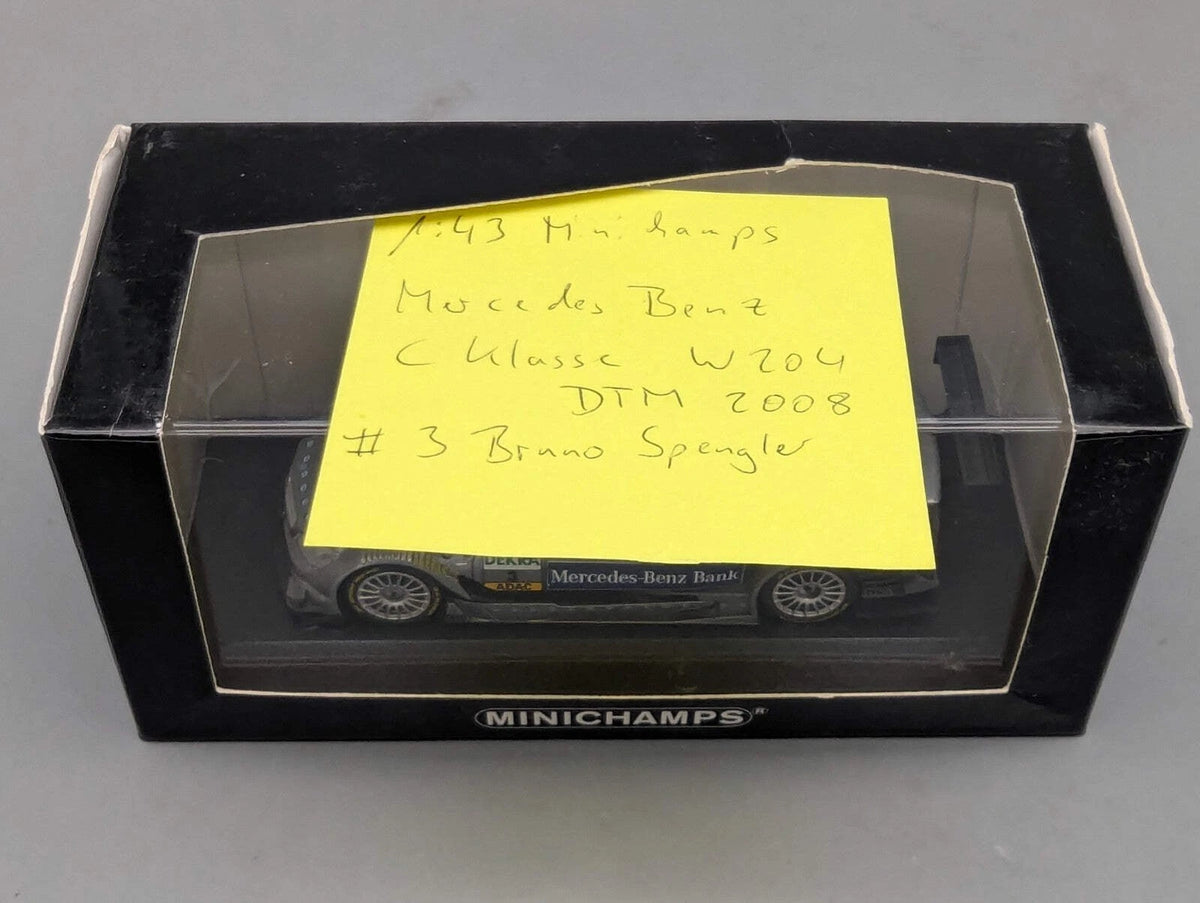 1:43 Minichamps
Mercedes Benz
C Klasse W204
DTM 2008
# 3 Bruno Spengler
DEKRA
3
ADAC
Mercedes-Benz Bank
MINICHAMPS®